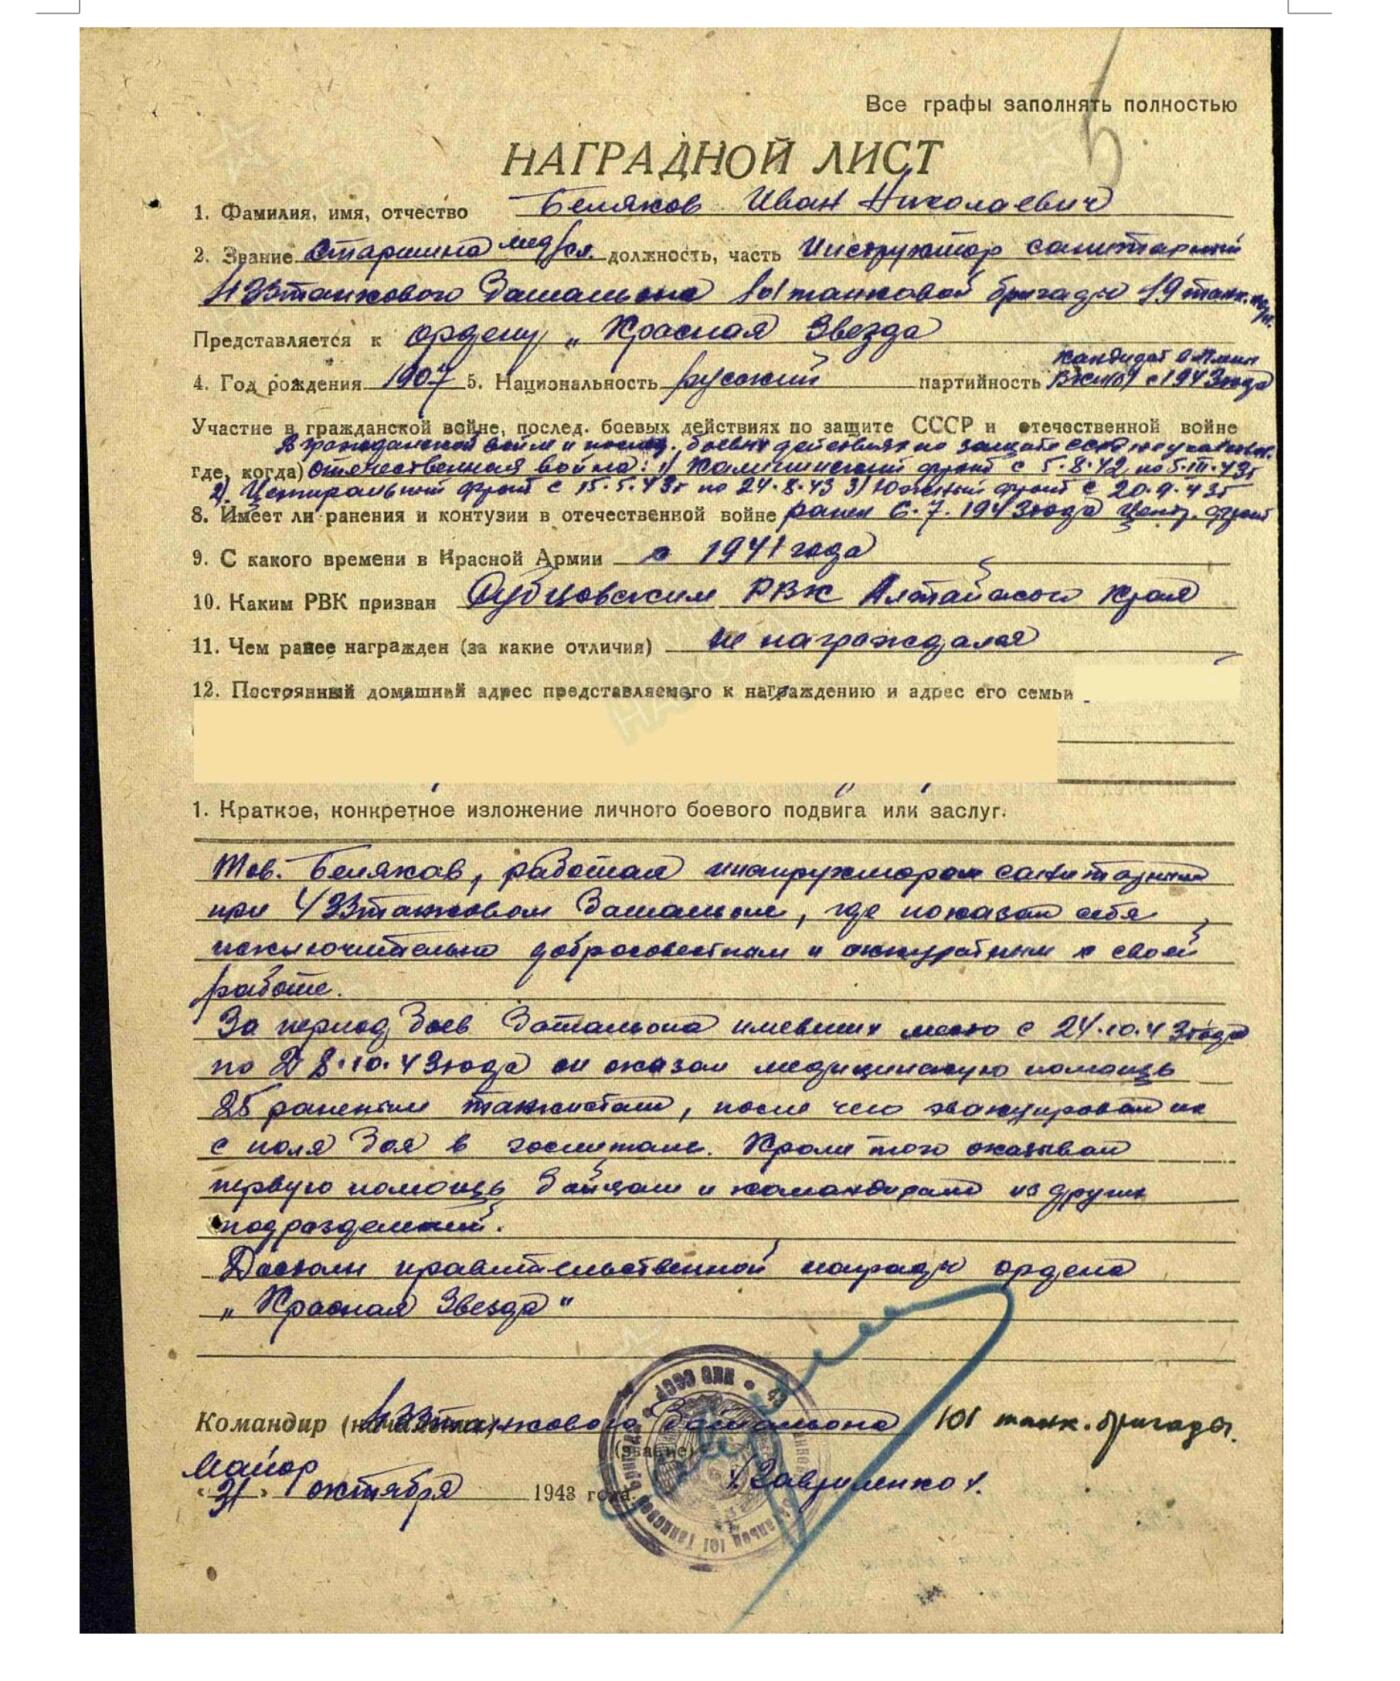 Все графы заполнять полностью
НАГРАДНОЙ ЛИСТ
1. Фамилия, имя, отчество Беляков Иван Николаевич
2. Звание Старшина мед/сл. должность, часть Инструктор санитарный
433 танкового батальона 101 танковой бригады 19 танк.
Представляется к ордену „Красная Звезда
4. Год рождения 1907 5. Национальность русский партийность кандидат в члены
ВКП(б) с 1943 года
Участие в гражданской войне, послед. боевых действиях по защите СССР и отечественной войне
В гражданской войне и послед. боевых действиях по защите СССР не участвов.
где, когда) отечественная война: 1) Калининский фронт с 5.8.42 по 5.III.43г
2) Центральный фронт с 15.5.43г по 24.8.43 3) Южный фронт с 20.9.43г
8. Имеет ли ранения и контузии в отечественной войне ранен 6.7.1943года Центр. фронт
9. С какого времени в Красной Армии с 1941 года
10. Каким РВК призван Рубцовским РВК Алтайского края
11. Чем ранее награжден (за какие отличия) не награждался
12. Постоянный домашний адрес представляемого к награждению и адрес его семьи
1. Краткое, конкретное изложение личного боевого подвига или заслуг.
Тов. Беляков, работая инструктором санитарным
при 433 танковом батальоне, где показал себя
исключительно добросовестным и аккуратным к своей
работе.
За период боев батальона имевших место с 24.10.43года
по 28.10.43года он оказал медицинскую помощь
25 раненым танкистам, после чего эвакуировал их
с поля боя в госпиталь. Кроме того оказывал
первую помощь бойцам и командирам из других
подразделений.
Достоин правительственной награды ордена
„Красная Звезда"
Командир (начальник) 433 танкового батальона 101 танк. бригады.
(звание)
Майор /Гавриленко/.
„31" октября 1943 года.
НКО СССР
101 Танковой Бригады